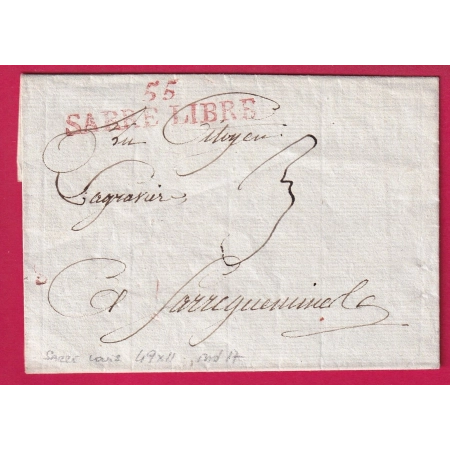 55
SARRE LIBRE
Au Citoyen
Lagravier
3
A Sarreguemine
SARRE LOUIS 49x11, ind 17